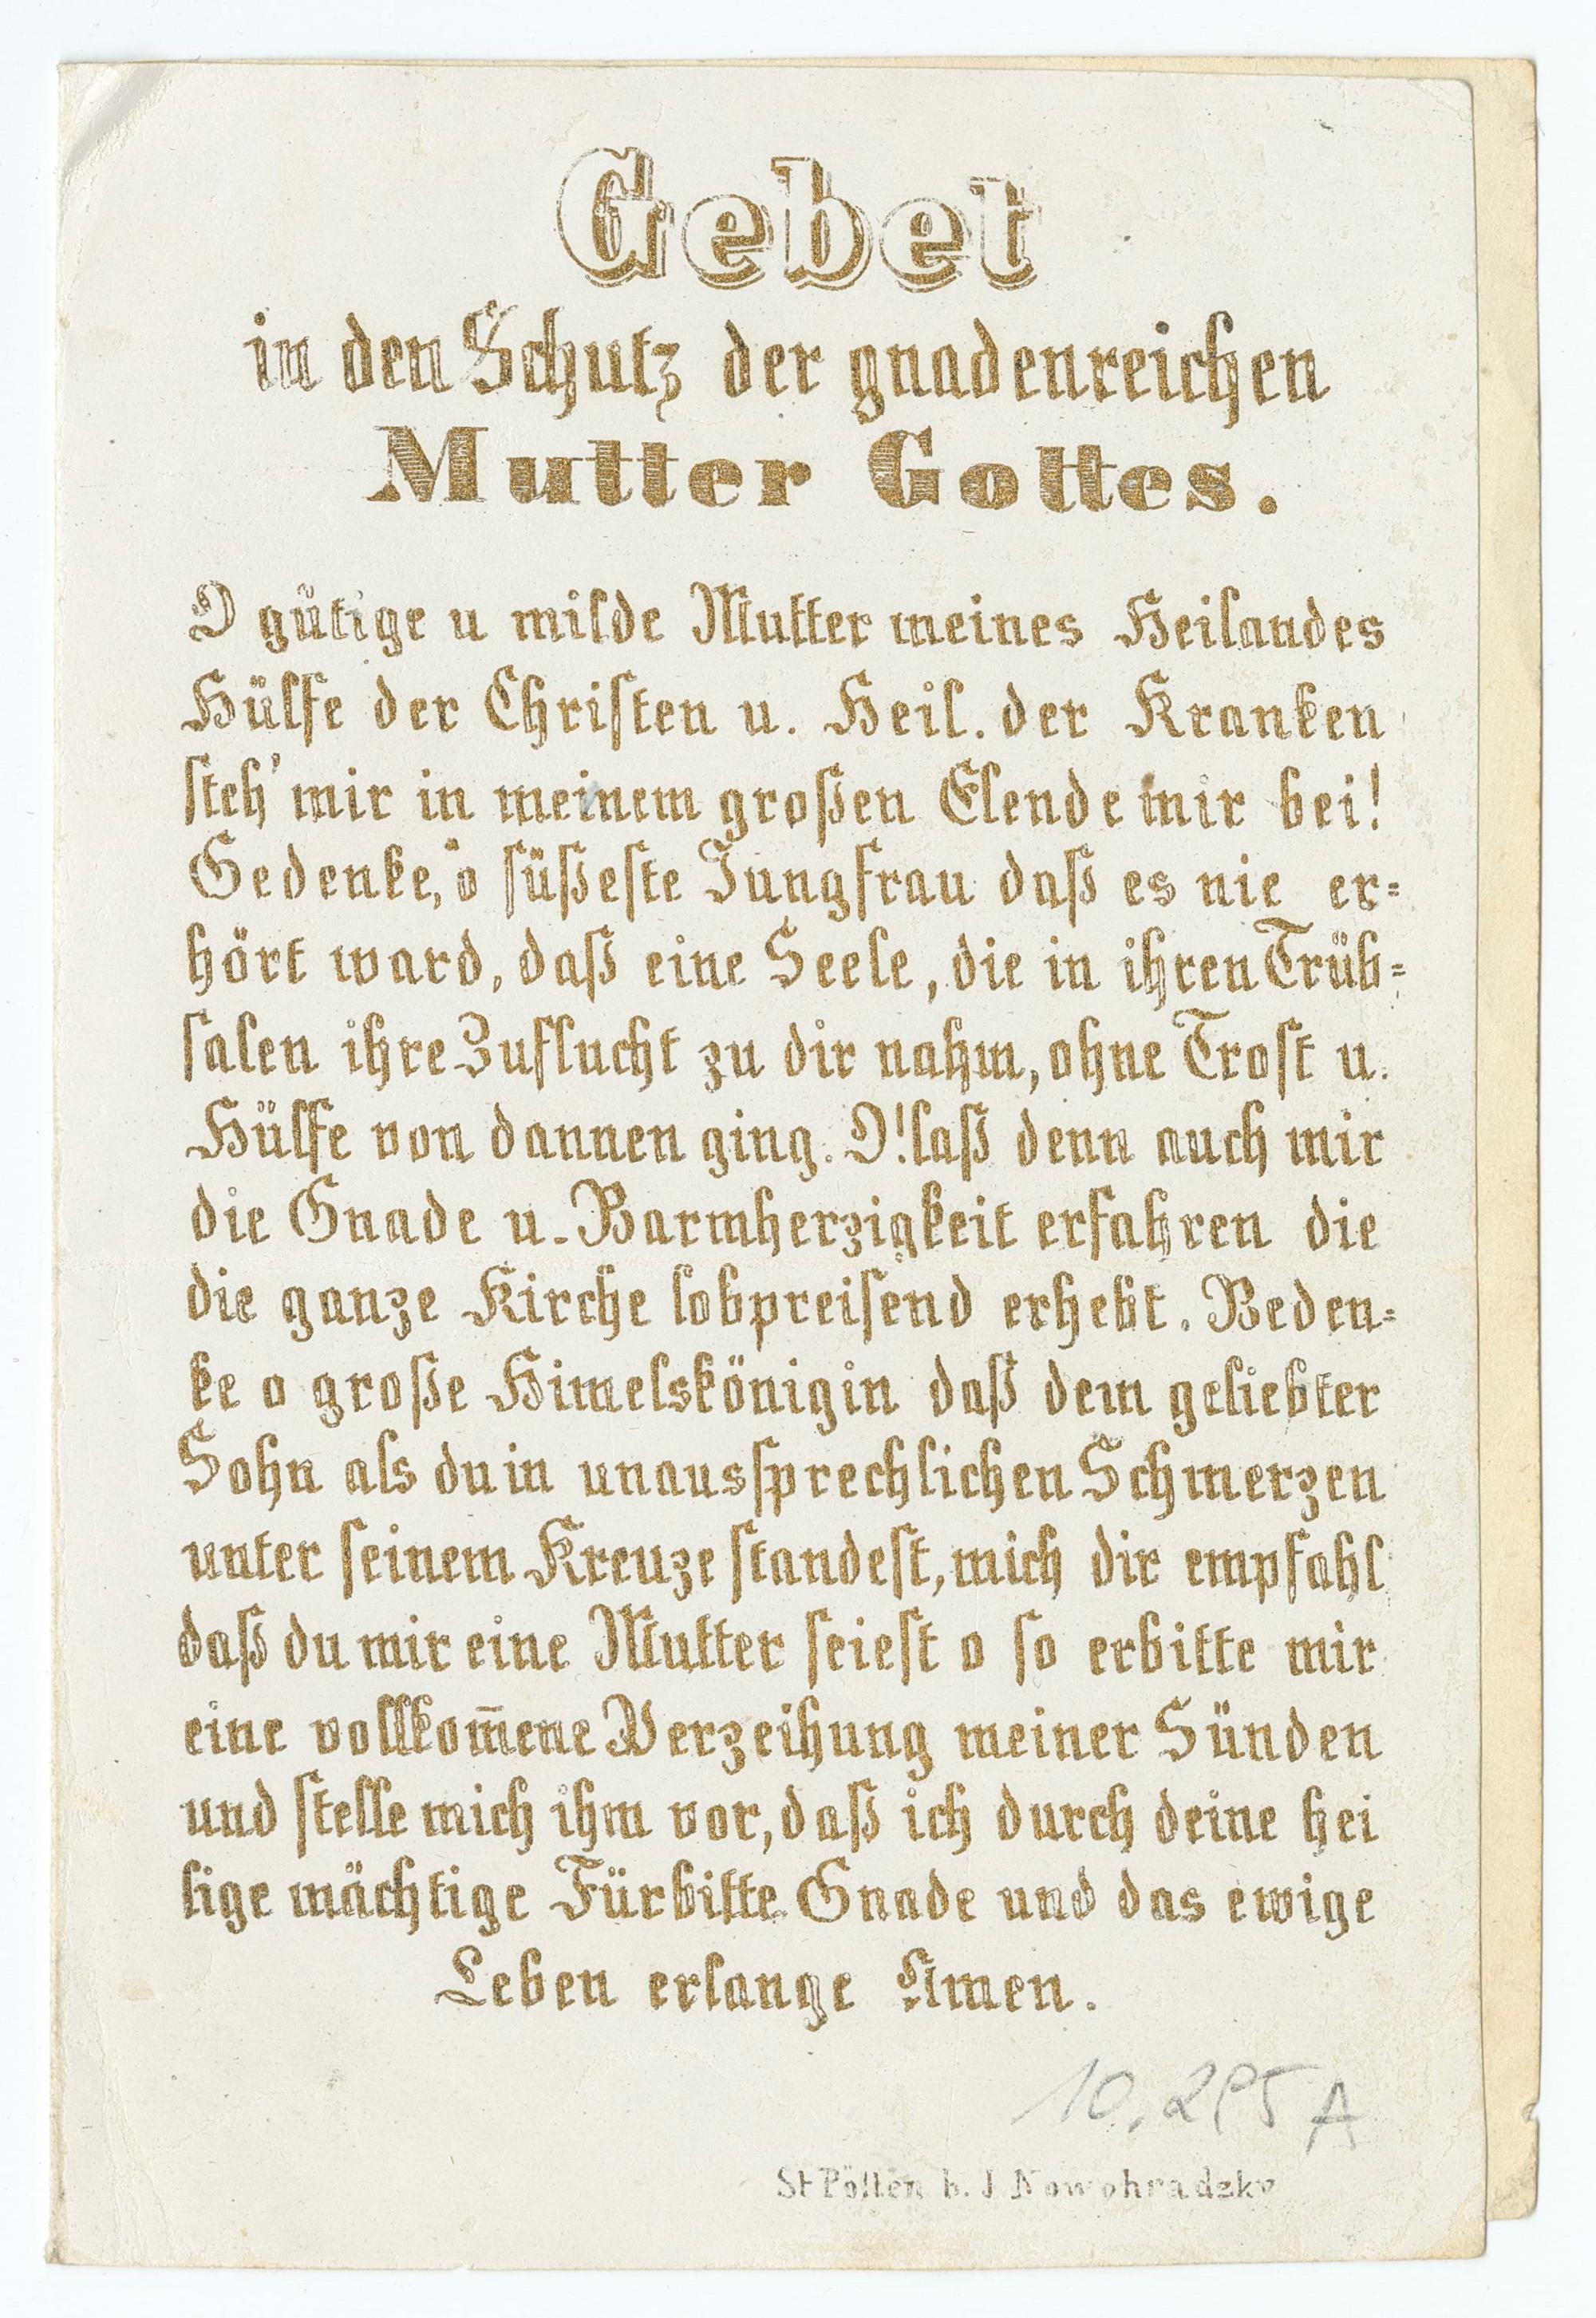 Gebet
in den Schutz der gnadenreichen
Mutter Gottes.
O gütige u milde Mutter meines Heilandes
Hülfe der Christen u. Heil. der Kranken
steh' mir in meinem großen Elende mir bei!
Gedenke, o süßeste Jungfrau daß es nie er=
hört ward, daß eine Seele, die in ihren Trüb=
salen ihre Zuflucht zu dir nahm, ohne Trost u.
Hülfe von dannen ging. O! laß denn auch mir
die Gnade u. Barmherzigkeit erfahren die
die ganze Kirche lobpreisend erhebt. Beden=
ke o große Himelskönigin daß dem geliebter
Sohn als du in unaussprechlichen Schmerzen
unter seinem Kreuze standest, mich dir empfahl
daß du mir eine Mutter seiest o so erbitte mir
eine vollkom̅ene Verzeihung meiner Sünden
und stelle mich ihm vor, daß ich durch deine hei
lige mächtige Fürbitte Gnade und das ewige
Leben erlange Amen.
10.295 A
St Pölten b. J Nowohradzky